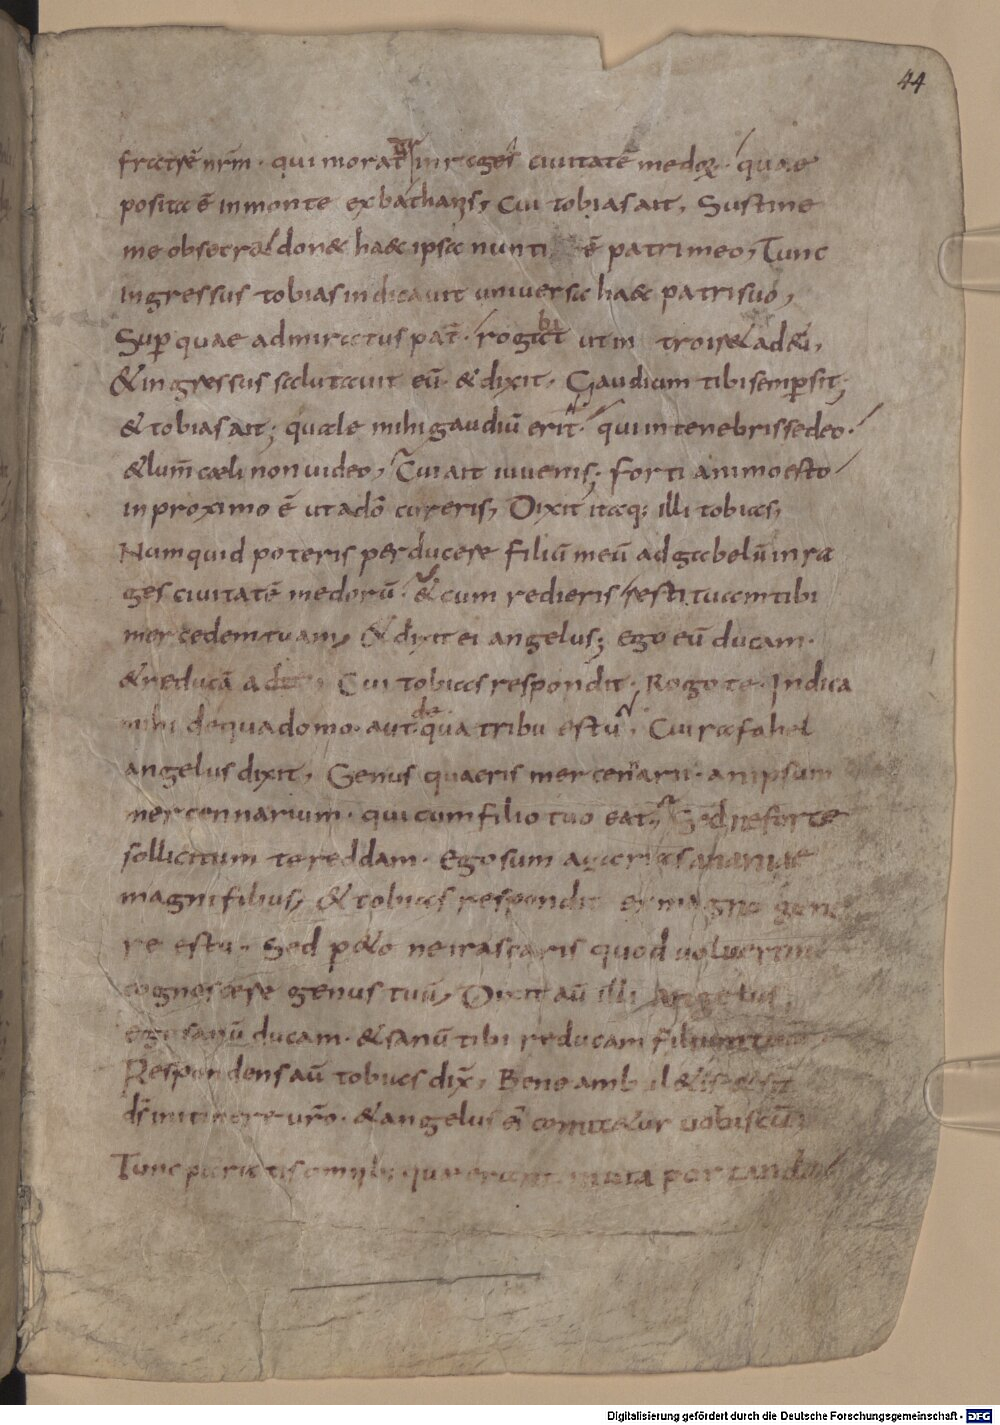 44
fratrē nr̄m · qui moratur in rages civitatē medoꝝ · quae
posita ē in monte exbathanis, Cui tobias ait, Sustine
me obsecro donec haec ipsa nunti ē patri meo, Tunc
ingressus tobias indicavit universa haec patri suo,
Sup quae admiratus pat̄ · rogabat ut introiret ad eū,
& ingressus salutavit eū · & dixit, Gaudium tibi semp sit;
& tobias ait; quale mihi gaudiū erit · qui in tenebris sedeo ·
& lum̄ caeli non video, Cui ait iuvenis; forti animo esto
in proximo ē ut a dō cureris, Dixit itaq; illi tobias,
Numquid poteris perducere filiū meū ad gabelū in ra
ges civitatē medorū · & cum redieris restituam tibi
mercedem tuam, & dixit ei angelus; ego eū ducam ·
& reducā ad te, Cui tobias respondit · Rogo te · Indica
mihi de qua domo · aut de qua tribu es tu, Cui rafahel
angelus dixit, Genus quaeris mercennarii · an ipsum
mercennarium · qui cum filio tuo eat, Sed ne forte
sollicitum te reddam · Ego sum azarias ananiae
magni filius, & tobias respondit ex magno gene
re es tu · Sed peto ne irascaris quod voluerim
cognoscere genus tuū, Dixit aū illi angelus,
ego sanū ducam · & sanū tibi reducam filium tuum,
Respondens aū tobias dix̄, Bene ambuletis & sit
ds̄ in itinere vr̄o · & angelus ei' comitetur vobiscū
Tunc paratis omnib; quae erant in via portanda
Digitalisierung gefördert durch die Deutsche Forschungsgemeinschaft - DFG